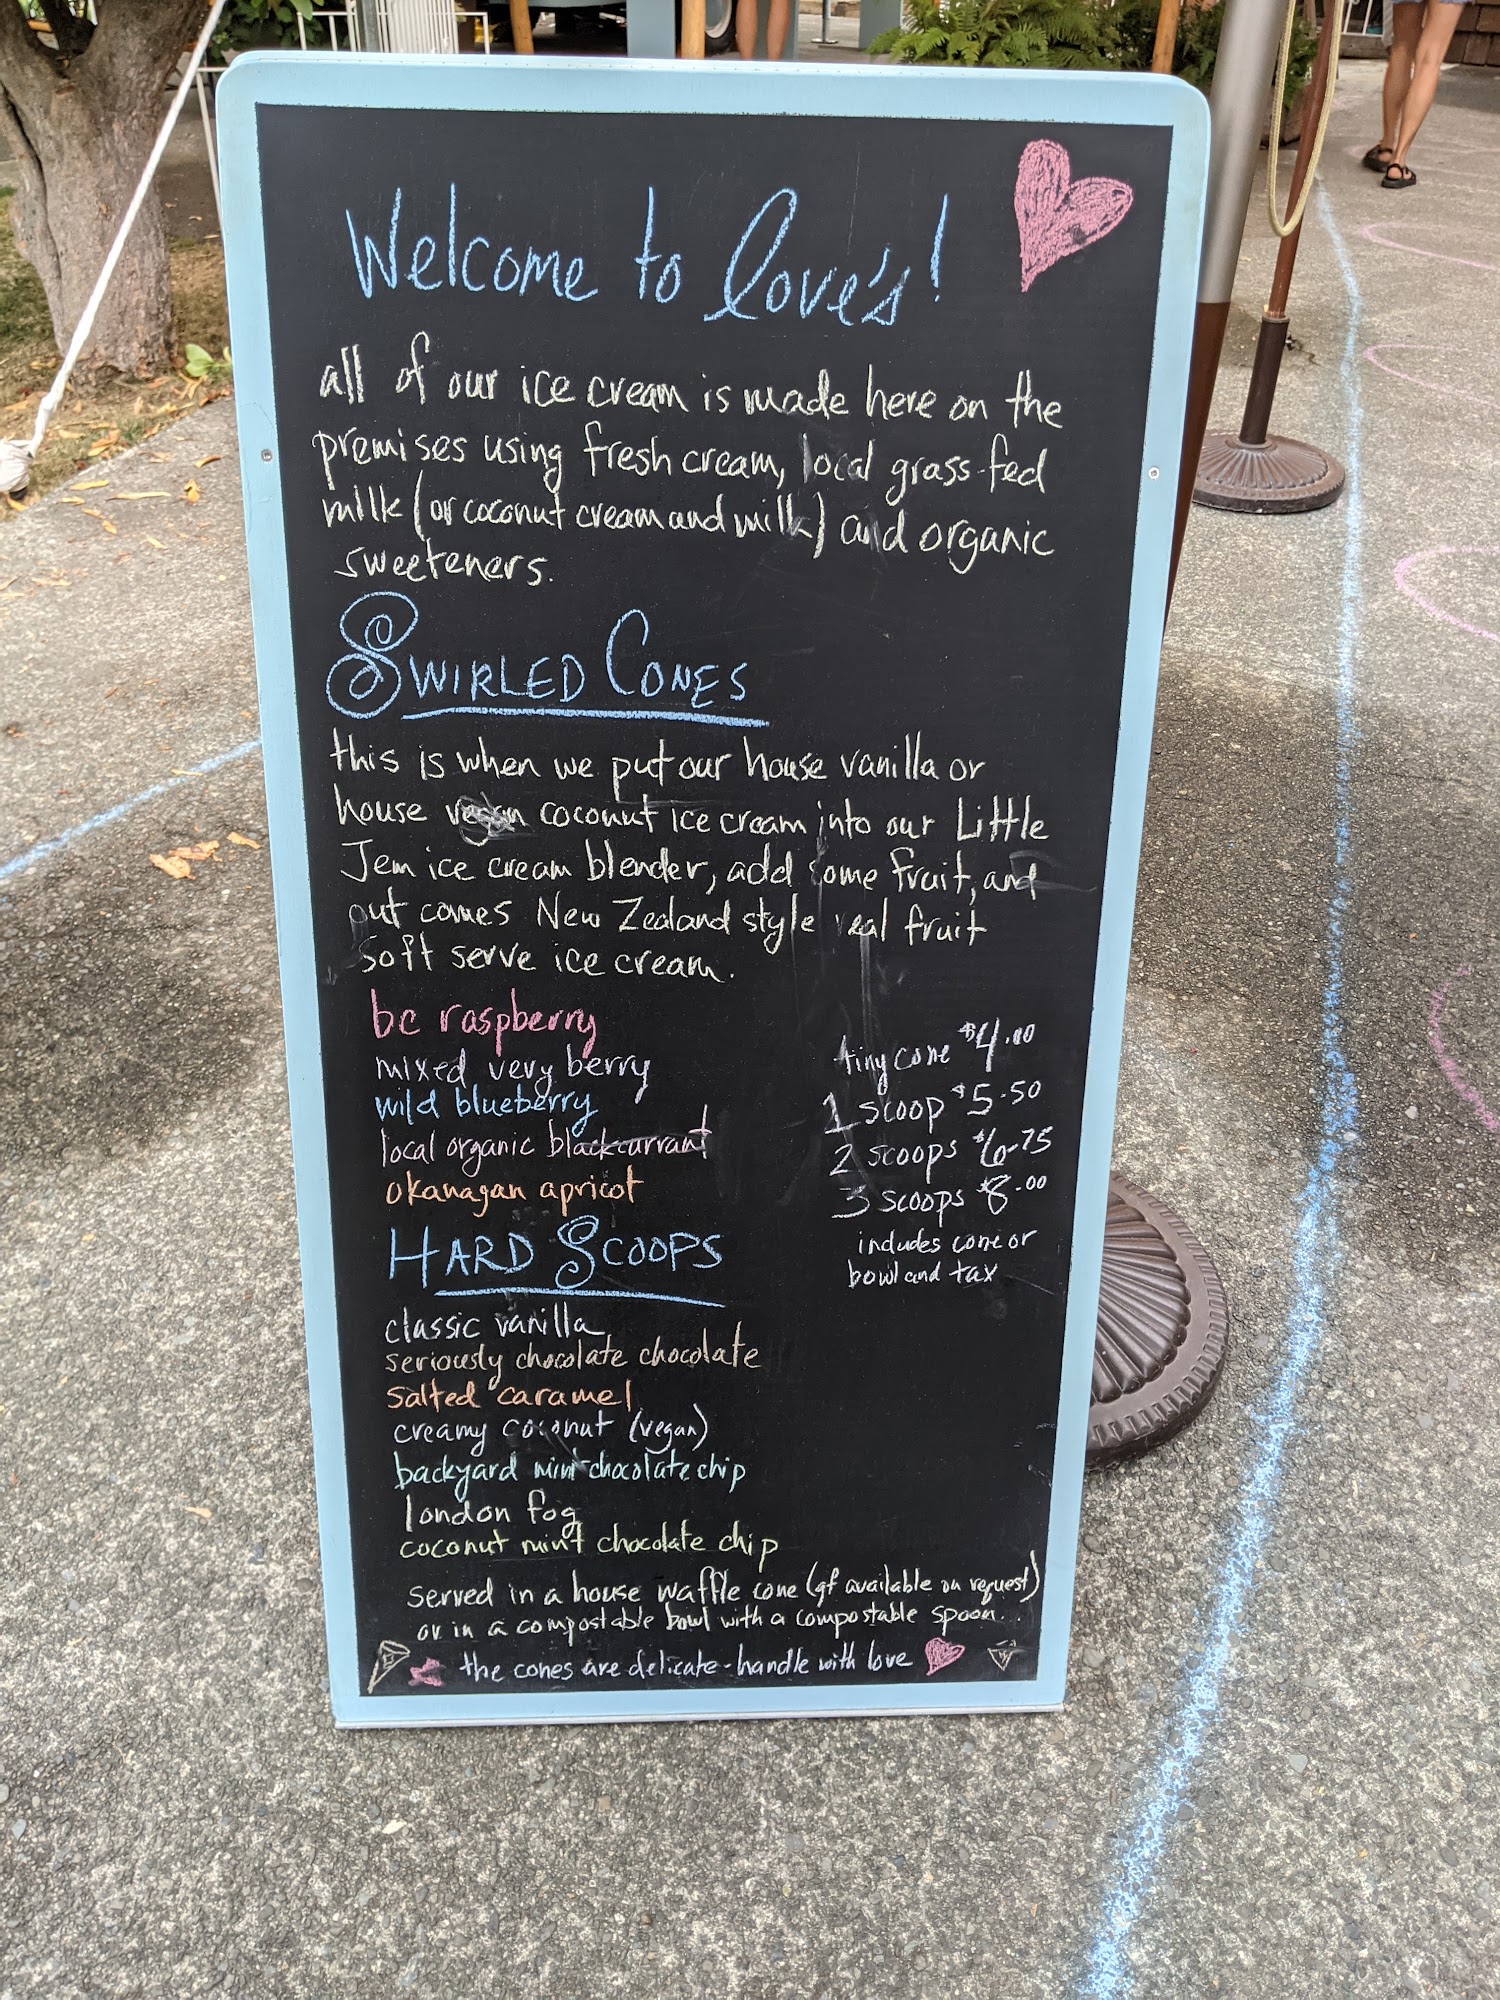 Welcome to love's!
all of our ice cream is made here on the
premises using fresh cream, local grass-fed
milk (or coconut cream and milk) and organic
sweeteners.
SWIRLED CONES
this is when we put our house vanilla or
house vegan coconut ice cream into our Little
Jem ice cream blender, add some fruit, and
out comes New Zealand style real fruit
soft serve ice cream.
bc raspberry
mixed very berry
wild blueberry
local organic blackcurrant
okanagan apricot
tiny cone $4.00
1 scoop $5.50
2 scoops $6.75
3 scoops $8.00
includes cone or
bowl and tax
HARD SCOOPS
classic vanilla
seriously chocolate chocolate
salted caramel
creamy coconut (vegan)
backyard mint chocolate chip
london fog
coconut mint chocolate chip
served in a house waffle cone (gf available on request)
or in a compostable bowl with a compostable spoon...
the cones are delicate - handle with love